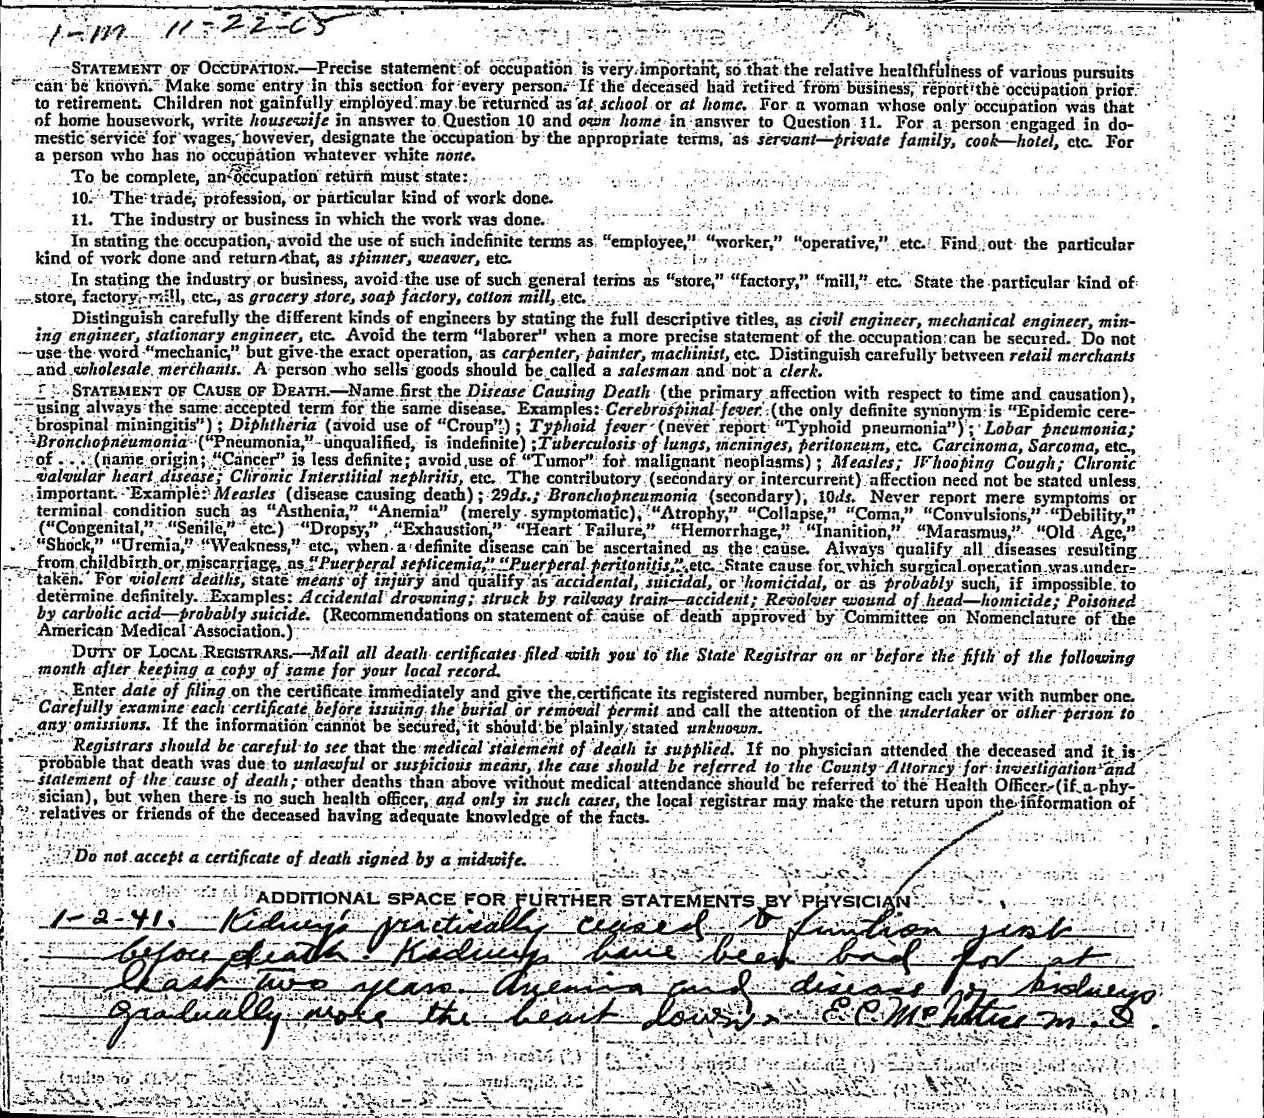 1-m 11-22-65
STATEMENT OF OCCUPATION.—Precise statement of occupation is very important, so that the relative healthfulness of various pursuits
can be known. Make some entry in this section for every person. If the deceased had retired from business, report the occupation prior
to retirement. Children not gainfully employed may be returned as at school or at home. For a woman whose only occupation was that
of home housework, write housewife in answer to Question 10 and own home in answer to Question 11. For a person engaged in do-
mestic service for wages, however, designate the occupation by the appropriate terms, as servant—private family, cook—hotel, etc. For
a person who has no occupation whatever white none.
To be complete, an occupation return must state:
10. The trade, profession, or particular kind of work done.
11. The industry or business in which the work was done.
In stating the occupation, avoid the use of such indefinite terms as “employee,” “worker,” “operative,” etc. Find out the particular
kind of work done and return that, as spinner, weaver, etc.
In stating the industry or business, avoid the use of such general terms as “store,” “factory,” “mill,” etc. State the particular kind of
store, factory, mill, etc., as grocery store, soap factory, cotton mill, etc.
Distinguish carefully the different kinds of engineers by stating the full descriptive titles, as civil engineer, mechanical engineer, min-
ing engineer, stationary engineer, etc. Avoid the term “laborer” when a more precise statement of the occupation can be secured. Do not
use the word “mechanic,” but give the exact operation, as carpenter, painter, machinist, etc. Distinguish carefully between retail merchants
and wholesale merchants. A person who sells goods should be called a salesman and not a clerk.
STATEMENT OF CAUSE OF DEATH.—Name first the Disease Causing Death (the primary affection with respect to time and causation),
using always the same accepted term for the same disease. Examples: Cerebrospinal fever (the only definite synonym is “Epidemic cere-
brospinal miningitis”); Diphtheria (avoid use of “Croup”); Typhoid fever (never report “Typhoid pneumonia”); Lobar pneumonia;
Bronchopneumonia (“Pneumonia,” unqualified, is indefinite); Tuberculosis of lungs, meninges, peritoneum, etc. Carcinoma, Sarcoma, etc.,
of . . . (name origin; “Cancer” is less definite; avoid use of “Tumor” for malignant neoplasms); Measles; Whooping Cough; Chronic
valvular heart disease; Chronic Interstitial nephritis, etc. The contributory (secondary or intercurrent) affection need not be stated unless
important. Example: Measles (disease causing death); 29ds.; Bronchopneumonia (secondary), 10ds. Never report mere symptoms or
terminal condition such as “Asthenia,” “Anemia” (merely symptomatic), “Atrophy,” “Collapse,” “Coma,” “Convulsions,” “Debility,”
(“Congenital,” “Senile,” etc.) “Dropsy,” “Exhaustion,” “Heart Failure,” “Hemorrhage,” “Inanition,” “Marasmus,” “Old Age,”
“Shock,” “Uremia,” “Weakness,” etc., when a definite disease can be ascertained as the cause. Always qualify all diseases resulting
from childbirth or miscarriage, as “Puerperal septicemia,” “Puerperal peritonitis,” etc. State cause for which surgical operation was under-
taken. For violent deaths, state means of injury and qualify as accidental, suicidal, or homicidal, or as probably such, if impossible to
determine definitely. Examples: Accidental drowning; struck by railway train—accident; Revolver wound of head—homicide; Poisoned
by carbolic acid—probably suicide. (Recommendations on statement of cause of death approved by Committee on Nomenclature of the
American Medical Association.)
DUTY OF LOCAL REGISTRARS.—Mail all death certificates filed with you to the State Registrar on or before the fifth of the following
month after keeping a copy of same for your local record.
Enter date of filing on the certificate immediately and give the certificate its registered number, beginning each year with number one.
Carefully examine each certificate before issuing the burial or removal permit and call the attention of the undertaker or other person to
any omissions. If the information cannot be secured, it should be plainly stated unknown.
Registrars should be careful to see that the medical statement of death is supplied. If no physician attended the deceased and it is
probable that death was due to unlawful or suspicious means, the case should be referred to the County Attorney for investigation and
statement of the cause of death; other deaths than above without medical attendance should be referred to the Health Officer (if a phy-
sician), but when there is no such health officer, and only in such cases, the local registrar may make the return upon the information of
relatives or friends of the deceased having adequate knowledge of the facts.
Do not accept a certificate of death signed by a midwife.
ADDITIONAL SPACE FOR FURTHER STATEMENTS BY PHYSICIAN
1-2-41. Kidneys practically ceased to function just
before death. Kidneys have been bad for at
least two years. Anemia and disease of kidneys
gradually wore the heart down. E C McNutt M.D.